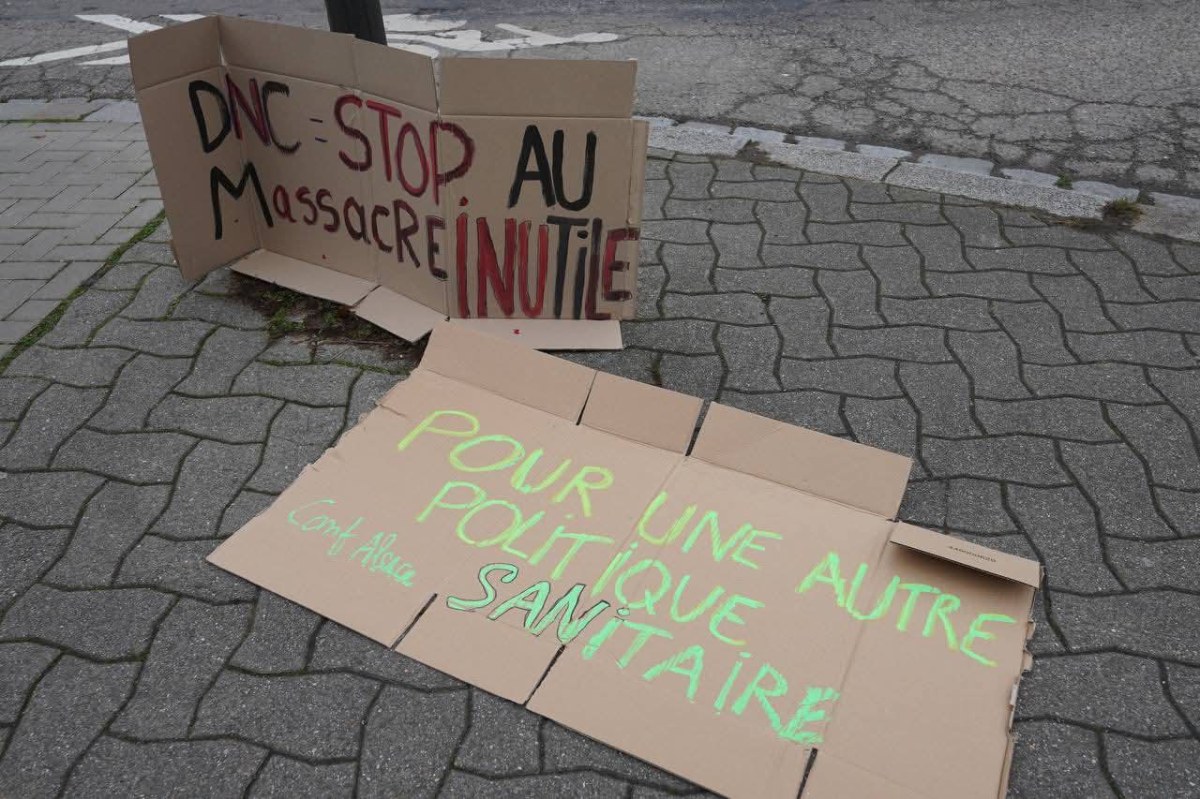 DNC = STOP AU
MassacRE INUTiLE
POUR UNE AUTRE
POLITiQUE
SANiTAiRE
Conf Alsace